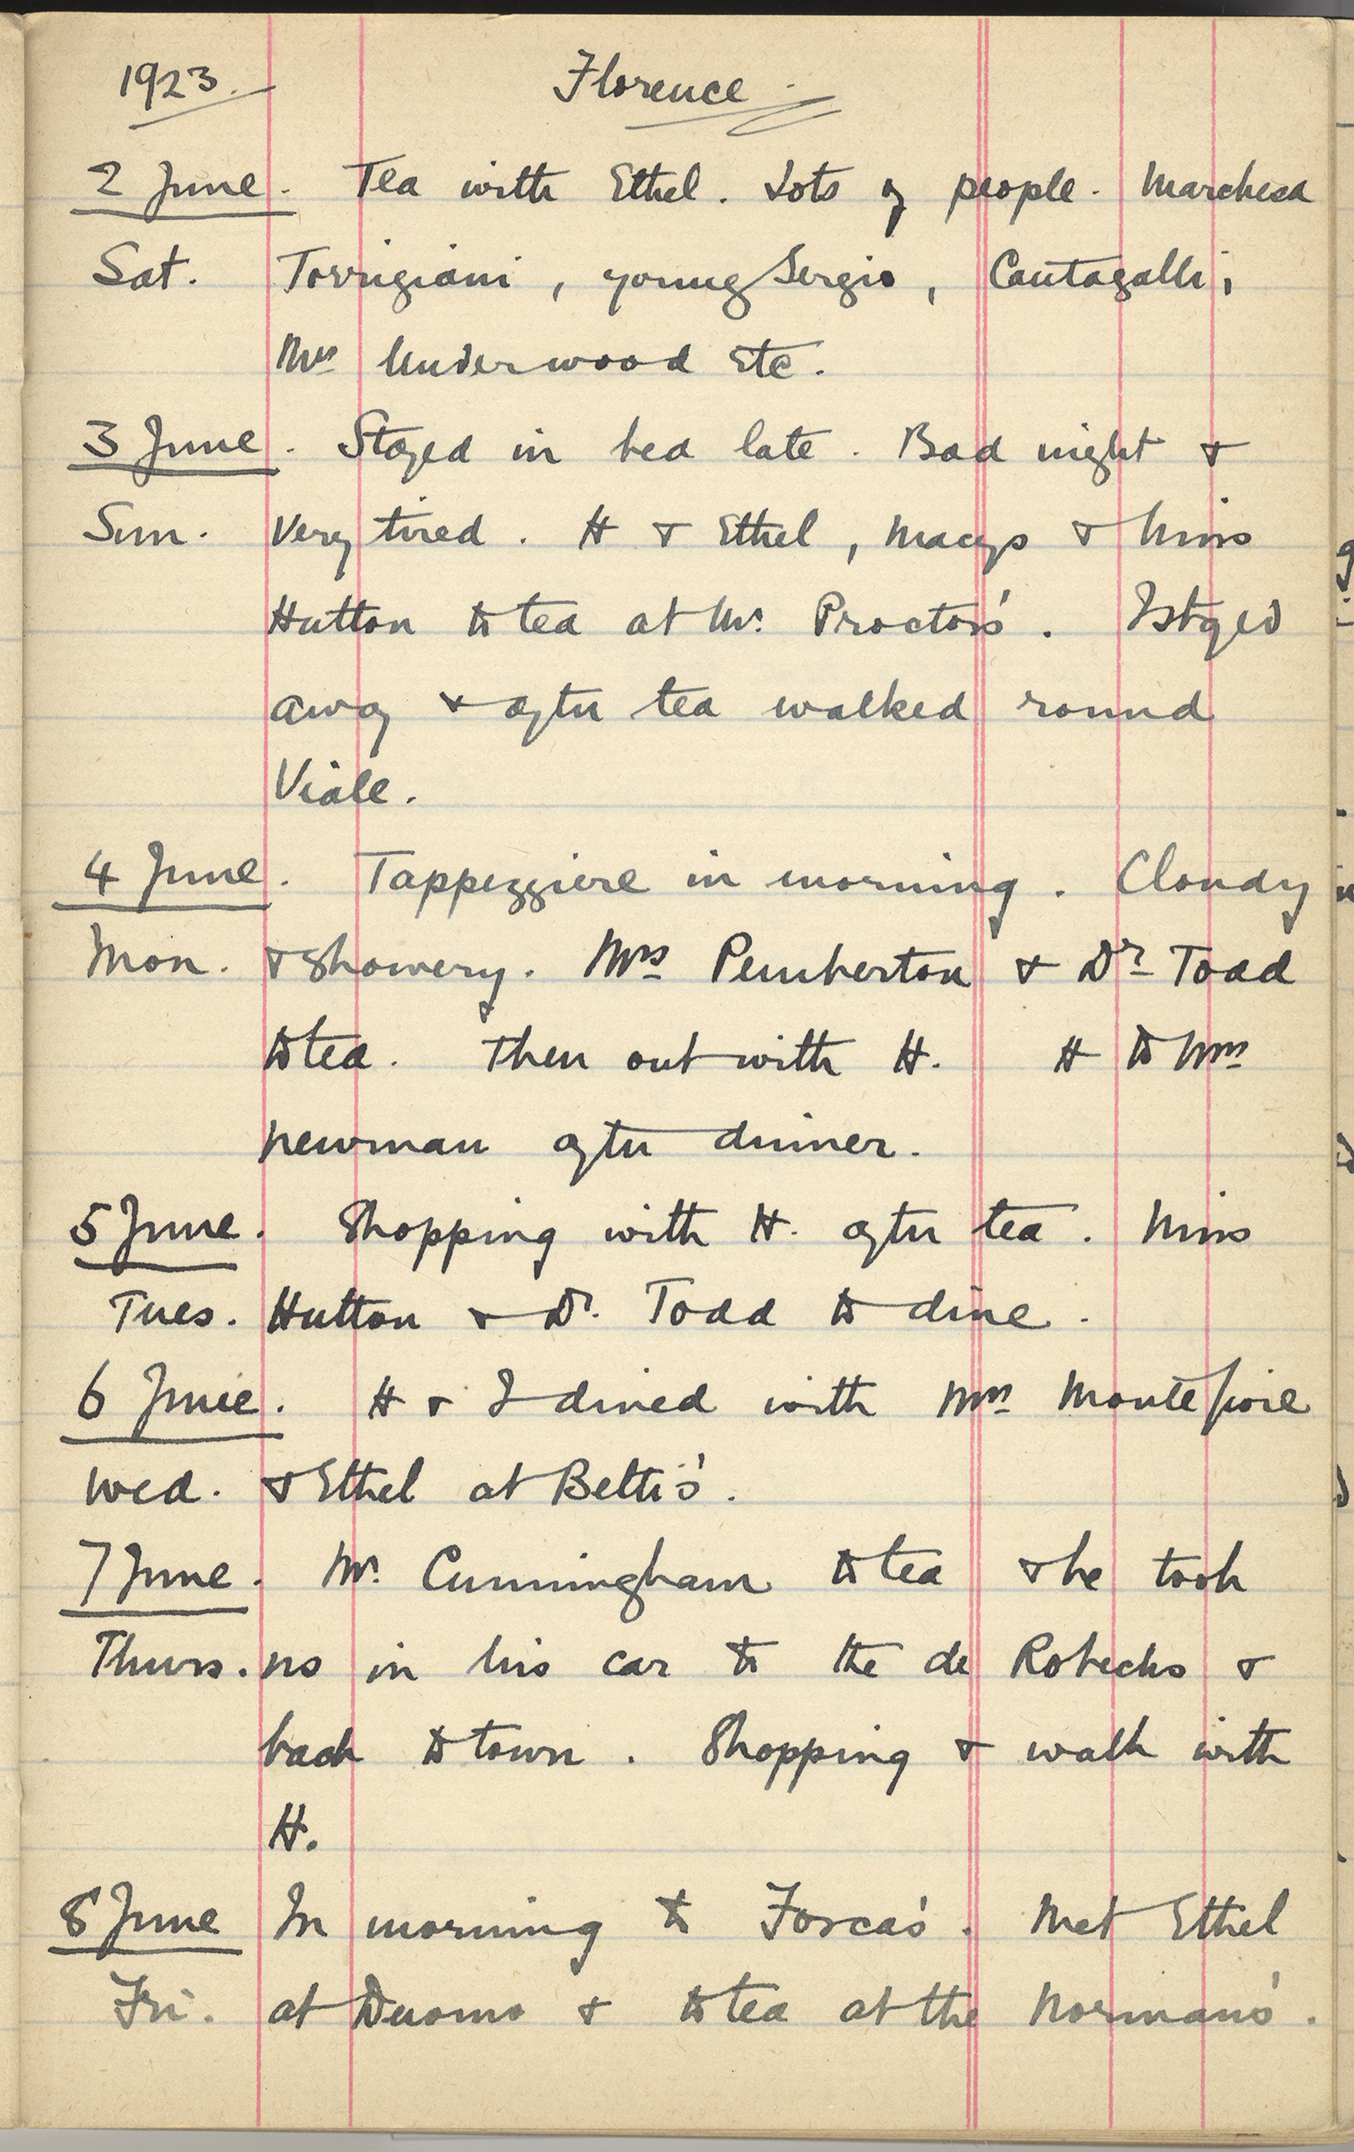 1923. Florence.
2 June. Tea with Ethel. Lots of people. Marchesa
Sat. Torrigiani, young Sergio, Cantagalli,
Mrs Underwood etc.
3 June. Stayed in bed late. Bad night &
Sun. Very tired. H & Ethel, Macys & Miss
Hutton to tea at Mr. Proctor's. I stayed
away & after tea walked round
Viale.
4 June. Tappezziere in morning. Cloudy
Mon. & showery. Mrs Pemberton & Dr Todd
to tea. Then out with H. H to Mrs
Newman after dinner.
5 June. Shopping with H. after tea. Miss
Tues. Hutton & Dr. Todd to dine.
6 June. H & I dined with Mrs Montefiore
Wed. & Ethel at Betti's.
7 June. Mr. Cunningham to tea & he took
Thurs. us in his car to the de Robecks &
back to town. Shopping & walk with
H.
8 June In morning to Forca's. Met Ethel
Fri. at Duomo & to tea at the Normans'.